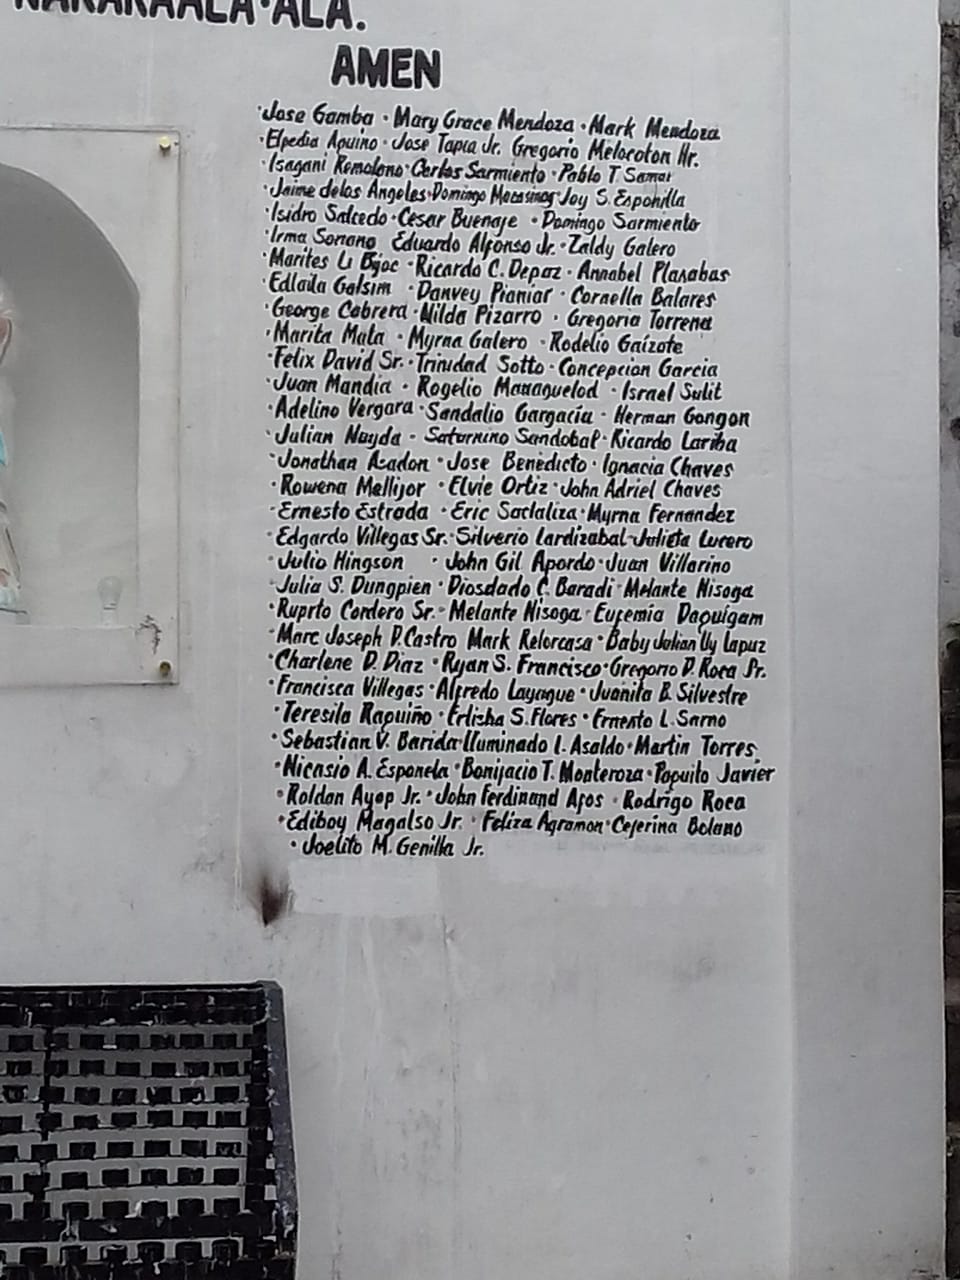 NAKAKAALA-ALA.
AMEN
·Jose Gamba · Mary Grace Mendoza · Mark Mendoza
·Elpedia Aquino · Jose Tapia Jr. Gregorio Melocoton Hr.
·Isagani Remolono · Carlos Sarmiento · Pablo T Samar
·Jaime delos Angeles · Domingo Mocasinos · Joy S. Esponilla
·Isidro Salcedo · Cesar Buenaje · Domingo Sarmiento
·Irma Soriano Eduardo Alfonso Jr. · Zaldy Galero
·Marites Li · Ricardo C. Depaz · Annabel Planabas
·Edlaila Galsim · Danvey Pianiar · Cornella Balares
·George Cabrera · Nilda Pizarro · Gregoria Torrena
·Marita Mata · Myrna Galero · Rodelio Gaizote
·Felix David Sr. · Trinidad Sotto · Concepcion Garcia
·Juan Mandia · Rogelio Managuelod · Israel Sulit
·Adelino Vergara · Sandalio Gargacia · Herman Gongon
·Julian Nayda - Saturnino Sandobal · Ricardo Lariba
·Jonathan Azadon · Jose Benedicto · Ignacia Chaves
·Rowena Mellijor · Elvie Ortiz · John Adriel Chaves
·Ernesto Estrada · Eric Saclaliza · Myrna Fernandez
·Edgardo Villegas Sr. · Silverio Lardizabal · Julieta Lucero
·Julio Hingson · John Gil Apordo · Juan Villarino
·Julia S. Dungpien · Diosdado C. Baradi · Melante Nisoga
·Ruprto Cordero Sr. · Melante Nisoga · Eufemia Daquigam
·Marc Joseph D. Castro Mark Relorcasa · Baby Julian Uy Lapuz
·Charlene D. Diaz · Ryan S. Francisco · Gregorio D. Roca Sr.
·Francisca Villegas · Alfredo Layague · Juanita B. Silvestre
·Teresila Raquiño · Erlisha S. Flores · Ernesto L. Sarno
·Sebastian V. Barida · Iluminado I. Asaldo · Martin Torres
·Nicasio A. Esponela · Bonifacio T. Monteroza · Paquito Javier
·Roldan Ayop Jr. · John Ferdinand Afos · Rodrigo Roca
·Ediboy Magalso Jr. · Feliza Agramon · Ceferina Bolano
·Joelito M. Genilla Jr.